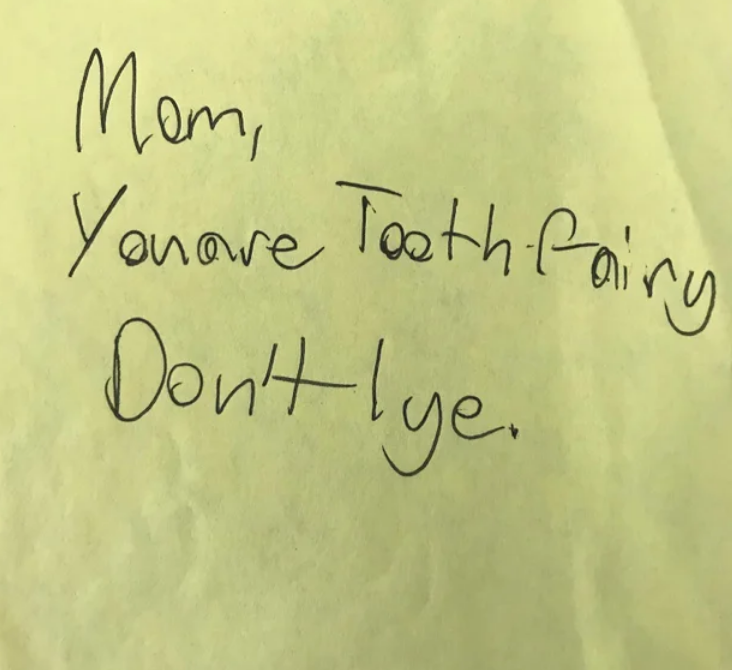 Mom,
You are Tooth fairy
Don't lye.